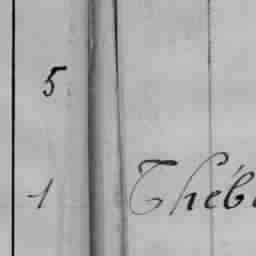 5
1 Théb